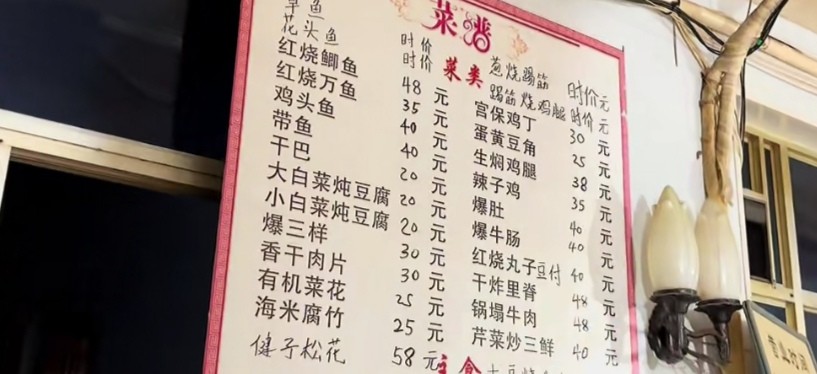 菜谱
草鱼 时价
花头鱼 时价
红烧鲫鱼 48元
红烧万鱼 35元
鸡头鱼 40元
带鱼 40元
干巴 20元
大白菜炖豆腐 20元
小白菜炖豆腐 20元
爆三样 30元
香干肉片 30元
有机菜花 25元
海米腐竹 25元
健子松花 58元
菜类
葱烧踢筋 时价元
踢筋烧鸡腿 时价元
宫保鸡丁 30元
蛋黄豆角 25元
生焖鸡腿 38元
辣子鸡 35元
爆肚 40元
爆牛肠 40元
红烧丸子豆付 40元
干炸里脊 48元
锅塌牛肉 48元
芹菜炒三鲜 40元
主食
营业时间